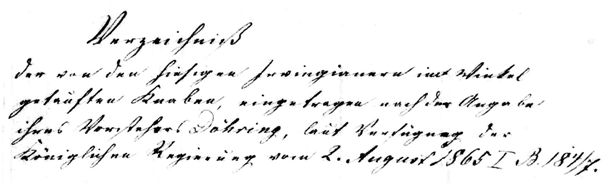 Verzeichniß
der von den hiesigen Irvingianern im Winkel
getauften Knaben, eingetragen nach der Angabe
ihres Vorstehers Döhring, laut Verfügung der
Königlichen Regierung vom 2. August 1865 I B.